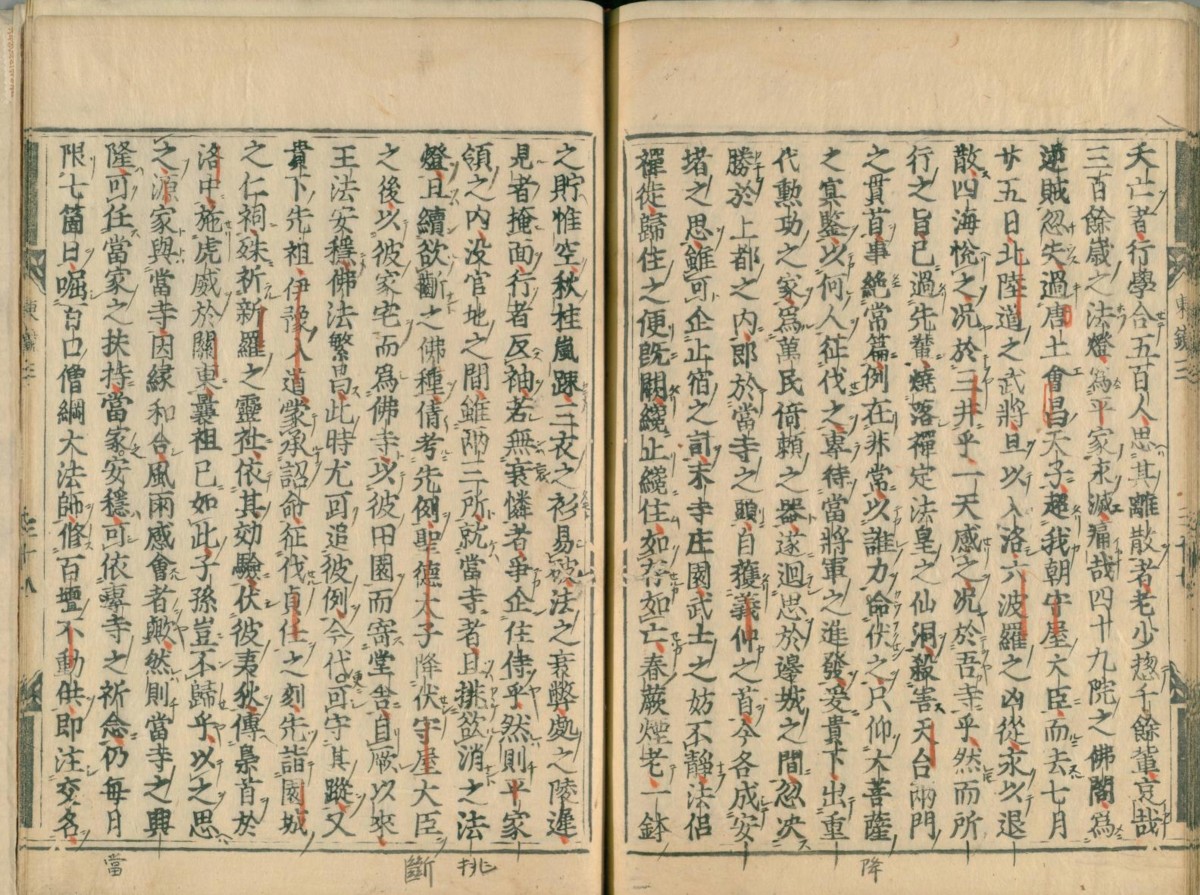 夭亡者行學合五百人思其離散者老少惣千餘輩哀哉
三百餘歲之法燈爲平家永滅痛哉四十九院之佛閣爲
逆賊忽失過唐土會昌天子超我朝守屋大臣而去七月
廿五日北陸道之武將且以入洛六波羅之凶從永以退
散四海悅之況於三井乎一天感之況於吾寺乎然而所
行之旨已過先輩燒落禪定法皇之仙洞殺害天台兩門
之貫首事絕常篇例在非常以誰力命伏之只仰大菩薩
之冥鑒以何人征伐之專待當將軍之進發爰貴下出重
代勳功之家爲萬民倚賴之器遂迴思於邊城之間忽決
勝於上都之內即於當寺之頭自獲義仲之首今各成安
堵之思雖可企止宿之計末寺庄園武士之妨不靜法侶
禪徒歸住之便旣闕纔止纔住如存如亡春蕨煙老一鉢
之貯惟空秋桂嵐踈三衣之衫易破法之衰弊處之陵遲
見者掩面行者反袖若無哀憐者爭企住侍乎然則平家
領之內沒官地之間雖兩三所就當寺者且挑欲消之法
燈且續欲斷之佛種倩考先例聖德太子降伏守屋大臣
之後以彼家宅而爲佛寺以彼田園而寄堂舍自厥以來
王法安穩佛法繁昌此時尤可追彼例今代可守其蹤又
貴下先祖伊豫入道蒙承詔命征伐貞任之刻先詣園城
之仁祠殊祈新羅之靈社依其効驗伏彼夷狄傳梟首於
洛中施虎威於關東曩祖已如此子孫豈不歸乎以之思
之源家與當寺因緣和合風雨感會者歟然則當寺之興
隆可任當家之扶持當家安穩可依當寺之祈念仍每月
限七箇日啒百口僧綱大法師修百壇不動供即注交名
降
挑
斷
當